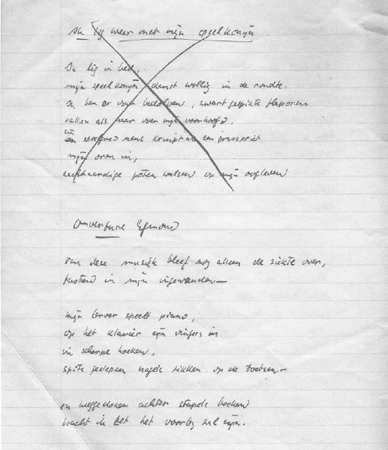 lig weer met mijn speelkonijn
Ik lig in bed,
mijn speelkonijn danst wollig in de rondte.
Ik ben er door bedolven, zwart gespikte
vallen als haar over mijn voorhoofd,
een mens kruipt als een
mijn oren in,
poten walsen op mijn oogleden
Ouverture Egmond
Van deze muziek bleef nog alleen de ziekte over,
tastend in mijn ingewanden—
mijn leraar speelt piano,
op het klavier zijn vingers in
in scherpe hoeken,
spits nagels tikken op de toetsen.—
en weggedoken achter stapels boeken
wacht ik tot het voorbij zal zijn.